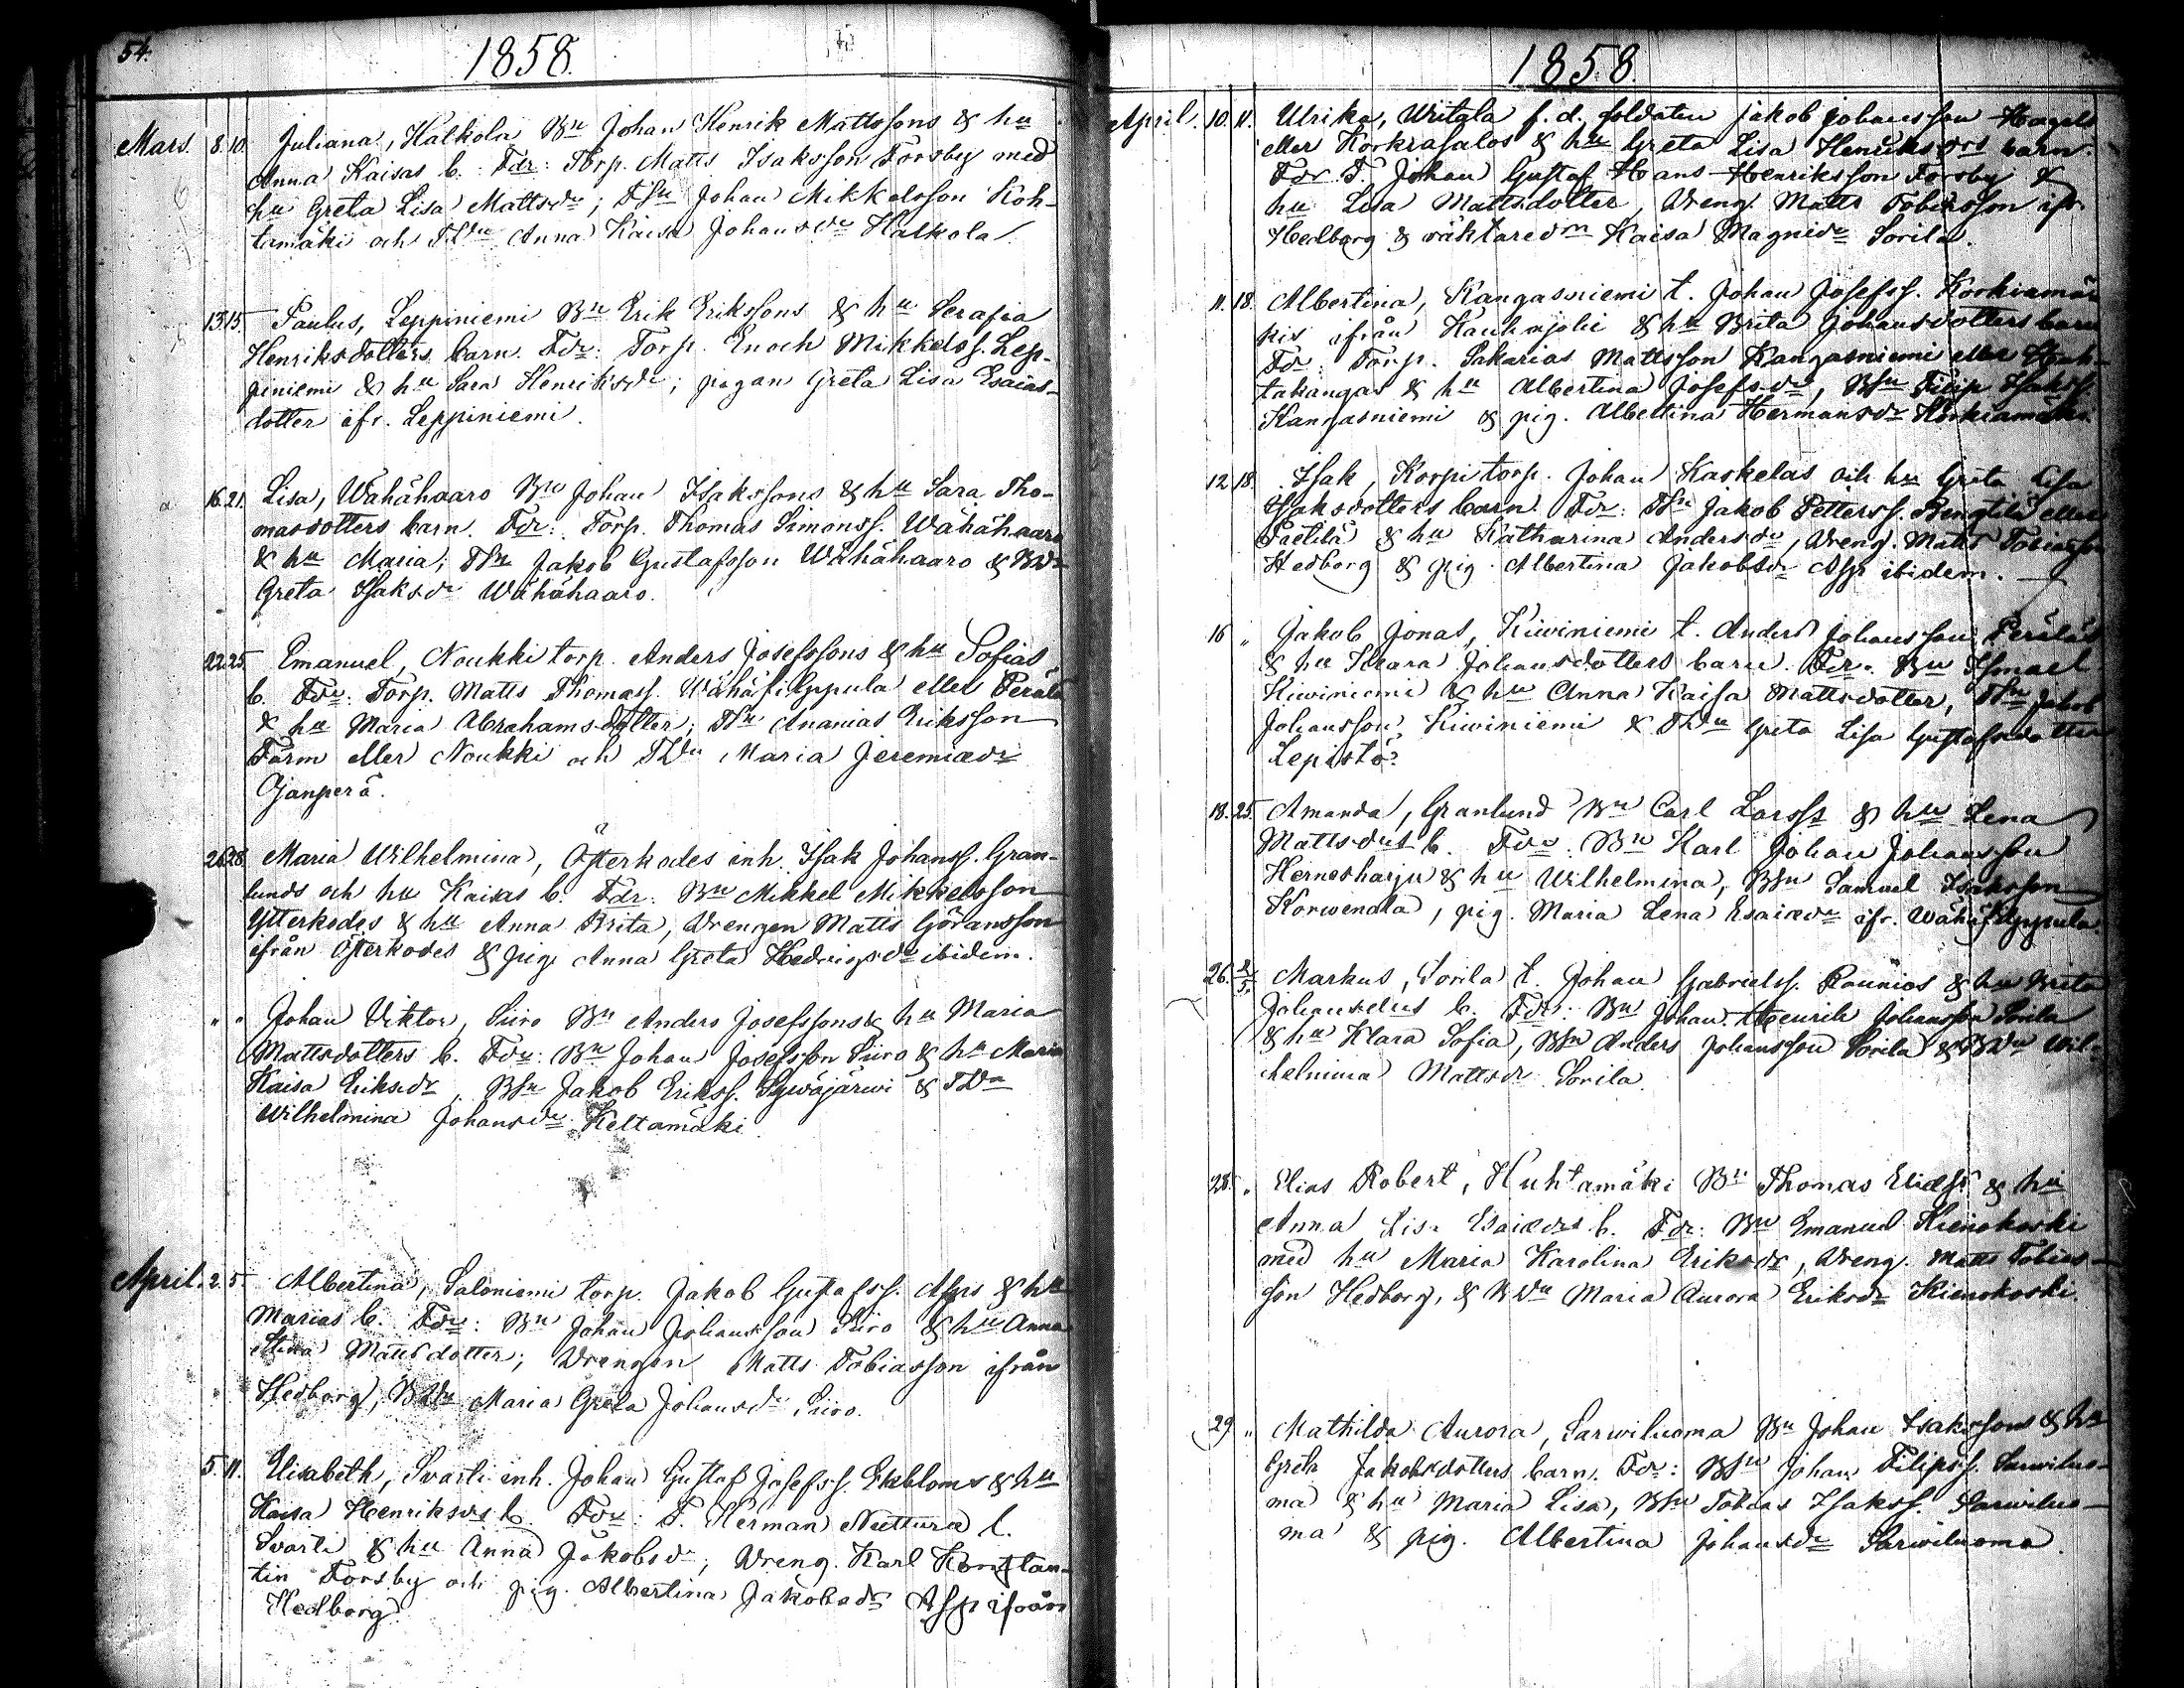 54.
1858.
Mars. 8. 10. Juliana, Halkola Bn Johan Henrik Mattssons & hu
Anna Kaisas b. Fdr: Torp. Matts Isaksson Forsby med
hu Greta Lisa Mattsdr; TSn Johan Mikkelsson Koh-
tamäki och TDn Anna Kaisa Johansdr Halkola.
13. 15. Paulus, Leppiniemi Bn Erik Erikssons & hu Serafia
Henriksdotters barn. Fdr: Torp. Enoch Mikkelss. Lep-
piniemi & hu Sara Henriksdr; pigan Greta Lisa Esaias-
dotter ifr. Leppiniemi.
16. 21. Lisa, Wähähaaro Bn Johan Isakssons & hu Sara Tho-
masdotters barn. Fdr: Torp. Thomas Simonss. Wähähaaro
& hu Maria; TSn Jakob Gustafsson Wähähaaro & BDr
Greta Isaksdr Wähähaaro.
22. 25. Emanuel, Noukki torp. Anders Josefssons & hu Sofias
b. Fdr: Torp. Matts Thomass. Wähäfilppula eller Perälä
& hu Maria Abrahamsdotter; TSn Ananias Eriksson
Farm eller Noukki och TDn Maria Jeremiædr
Ojanperä.
26. 28. Maria Wilhelmina, Österkodes inh. Isak Johanss. Gran-
lunds och hu Kaisas b. Fdr: Bn Mikkel Mikkelsson
Ytterkodes & hu Anna Brita, drengen Matts Göransson
ifrån Österkodes & pig. Anna Greta Hedvigsdr ibidem.
" " Johan Viktor, Siiro Bn Anders Josefssons & hu Maria
Mattsdotters b. Fdr: Bn Johan Josefsson Siiro & hu Maria
Kaisa Eriksdr, BSn Jakob Erikss. Sywäjärwi & TDn
Wilhelmina Johansdr Keltamäki
April. 2. 5. Albertina, Saloniemi torp. Jakob Gustafss. Asps & hu
Marias b. Fdr: Bn Johan Johansson Siiro & hu Anna
Stina Mattsdotter; Drengen Matts Tobiasson ifrån
Hedborg, BDn Maria Greta Johansdr Siiro.
5. 11. Elisabeth, Svarti inh. Johan Gustaf Josefss. Ekbloms & hu
Kaisa Henriksdrs b. Fdr: T. Herman Neuttura l.
Svarti & hu Anna Jakobsdr; Dreng. Karl Konstan-
tin Forsby och pig. Albertina Jakobsdr Asp ifrån
Hedborg.
1858.
April. 10. 11. Ulrika, Uritala f.d. soldaten Jakob Johansson Hagels
eller Korkiasalos & hu Greta Lisa Henriksdrs barn.
Fdr T. Johan Gustaf Hans Henriksson Forsby &
hu Lisa Mattsdotter, Dreng Matts Tobiasson ifr.
Hedborg & räktaredn Kaisa Magnidr Sorila.
11. 18. Albertina, Kangasniemi t. Johan Josefss. Korkiamä-
kis ifrån Kauhajoki & hu Brita Johansdotters barn
Fdr: Torp. Sakarias Mattsson Kangasniemi eller Huh-
takangas & hu Albertina Josefsdr, BSn Filip Isakss.
Kangasniemi & pig. Albertina Hermansdr Korkiamäki.
12. 18. Isak, Korpi torp. Johan Kaskelas och hu Greta Lisa
Isaksdotters barn. Fdr: TSn Jakob Petterss. Bengtilä eller
Paetilä & hu Katharina Andersdr, Dreng. Matts Tobiasson
Hedborg & pig. Albertina Jakobsdr Asp ibidem.
16 " Jakob Jonas, Kiwiniemi t. Anders Johansson Peräläs
& hu Saara Johansdotters barn. Fdr. Bn Ismael
Kiwiniemi & hu Anna Kaisa Mattsdotter, TSn Jakob
Johansson, Kiwiniemi & TDn Greta Lisa Gustafsdotter
Lepistö.
18. 25. Amanda, Granlund Bn Carl Larss & hu Lena
Mattsdrs b. Fdr: Bn Karl Johan Johansson
Hernesharju & hu Wilhelmina, BSn Samuel Isaksson
Korwenala, pig. Maria Lena Esaiædr ifr. Wähäfilppula.
26. 2/5. Markus, Sorila t. Johan Gabrielss. Raunios & hu Brita
Johansdrs b. Fdr: Bn Johan Henrik Johansson Sorila
& hu Klara Sofia, BSn Anders Johansson Sorila & BDn Wil-
helmina Mattsdr Sorila.
28. " Elias Robert, Huhtamäki Bn Thomas Eliæss & hu
Anna Lisa Esaiædrs b. Fdr: Bn Emanuel Hienokoski
med hu Maria Karolina Eriksdr, Dreng. Matts Tobias-
son Hedborg, & BDn Maria Aurora Eriksdr Hienokoski.
29. " Mathilda Aurora, Sarwiluoma Bn Johan Isakssons & hu
Greta Jakobsdotters barn. Fdr: BSn Johan Filipss. Sarwiluo-
ma & hu Maria Lisa, BSn Tobias Isakss. Sarwiluo-
ma & pig. Albertina Johansdr Sarwiluoma.